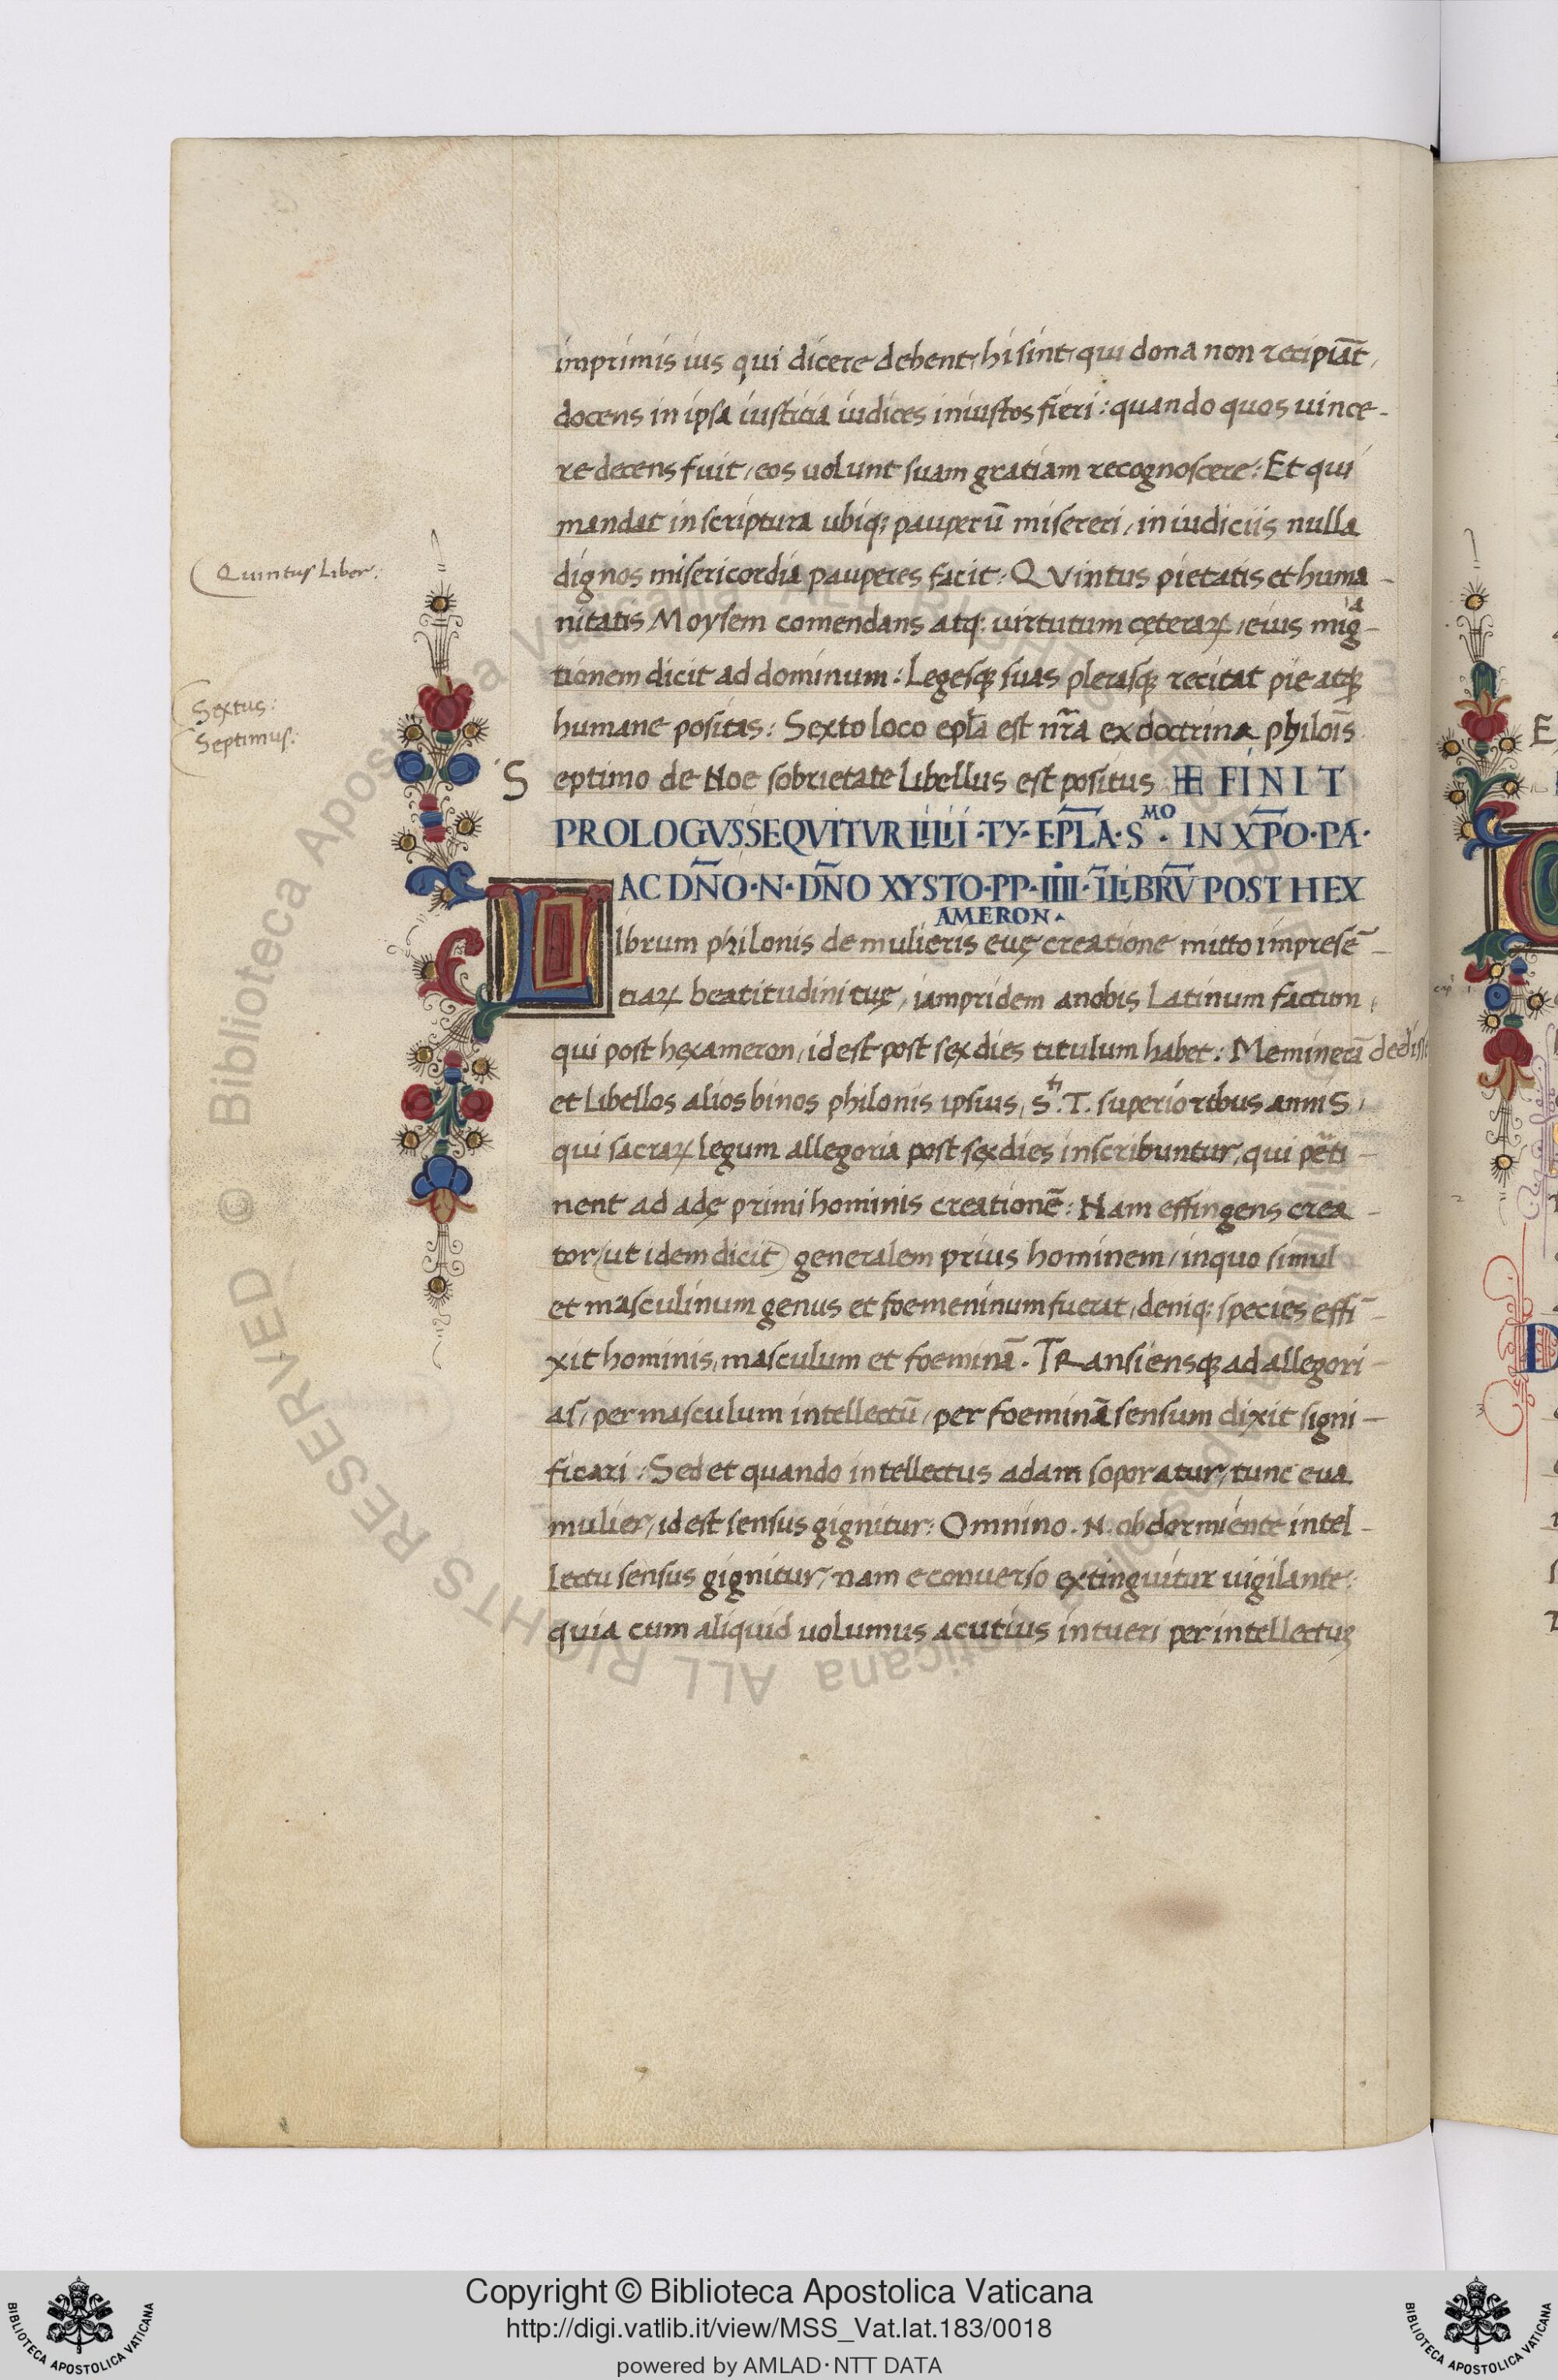 imprimis ius qui dicere debent, hi sint, qui dona non recipiāt,
docens in ipsa iusticia iudices iniustos fieri: quando quos uince-
re decens fuit, eos uolunt suam gratiam recognoscere: Et qui
mandat in scriptura ubiq; pauperū misereri, in iudiciis nulla
dignos misericordia pauperes facit: Quintus Liber: QVintus pietatis et huma-
nitatis Moysem comendans atq; uirtutum cęterarꝝ, eius mig̛ᵃ-
tionem dicit ad dominum: Legesqꝫ suas plerasqꝫ recitat pie atqꝫ
Sextus:
humane positas: Sexto loco epl̄a est nr̄a ex doctrina philois̄
Septimus:
S eptimo de Noe sobrietate libellus est positus FINIT
PROLOGVS SEQVITVR LILII·TY·EPL̄A·S.ᴹᴼ IN XP̄O·PA·
AC DÑO·N·DÑO XYSTO·PP·IIII·Ī LIBRV̄ POST HEX
AMERON.
Librum philonis de mulieris euę creatione mitto impresē-
tiarꝝ beatitudini tuę, iampridem anobis Latinum factum,
qui post hexameron, idest post sex dies titulum habet: Meminerā dediss
et Libellos alios binos philonis ipsius, S.ᵗⁱ T. superioribus annis,
qui sacrarꝝ legum allegoria post sex dies inscribuntur, qui pēti-
nent ad adę primi hominis creationē: Nam effingens crea-
tor (ut idem dicit) generalem prius hominem, inquo simul
et masculinum genus et foemeninum fuerit, deniq; species effi-
xit hominis, masculum et foeminā. TRansiensqꝫ ad allegori-
as, per masculum intellectū, per foeminā sensum dixit signi-
ficari: Sed et quando intellectus adam soporatur, tunc eua
mulier, id est sensus gignitur: Omnino.N. obdormiente intel-
lectu sensus gignitur, nam econuerso extinguitur uigilante:
quia cum aliquid uolumus acutius intueri per intellectuꝫ
E
D
Copyright © Biblioteca Apostolica Vaticana
http://digi.vatlib.it/view/MSS_Vat.lat.183/0018
powered by AMLAD·NTT DATA
BIBLIOTECA APOSTOLICA VATICANA
BIBLIOTECA APOSTOLICA VATICANA